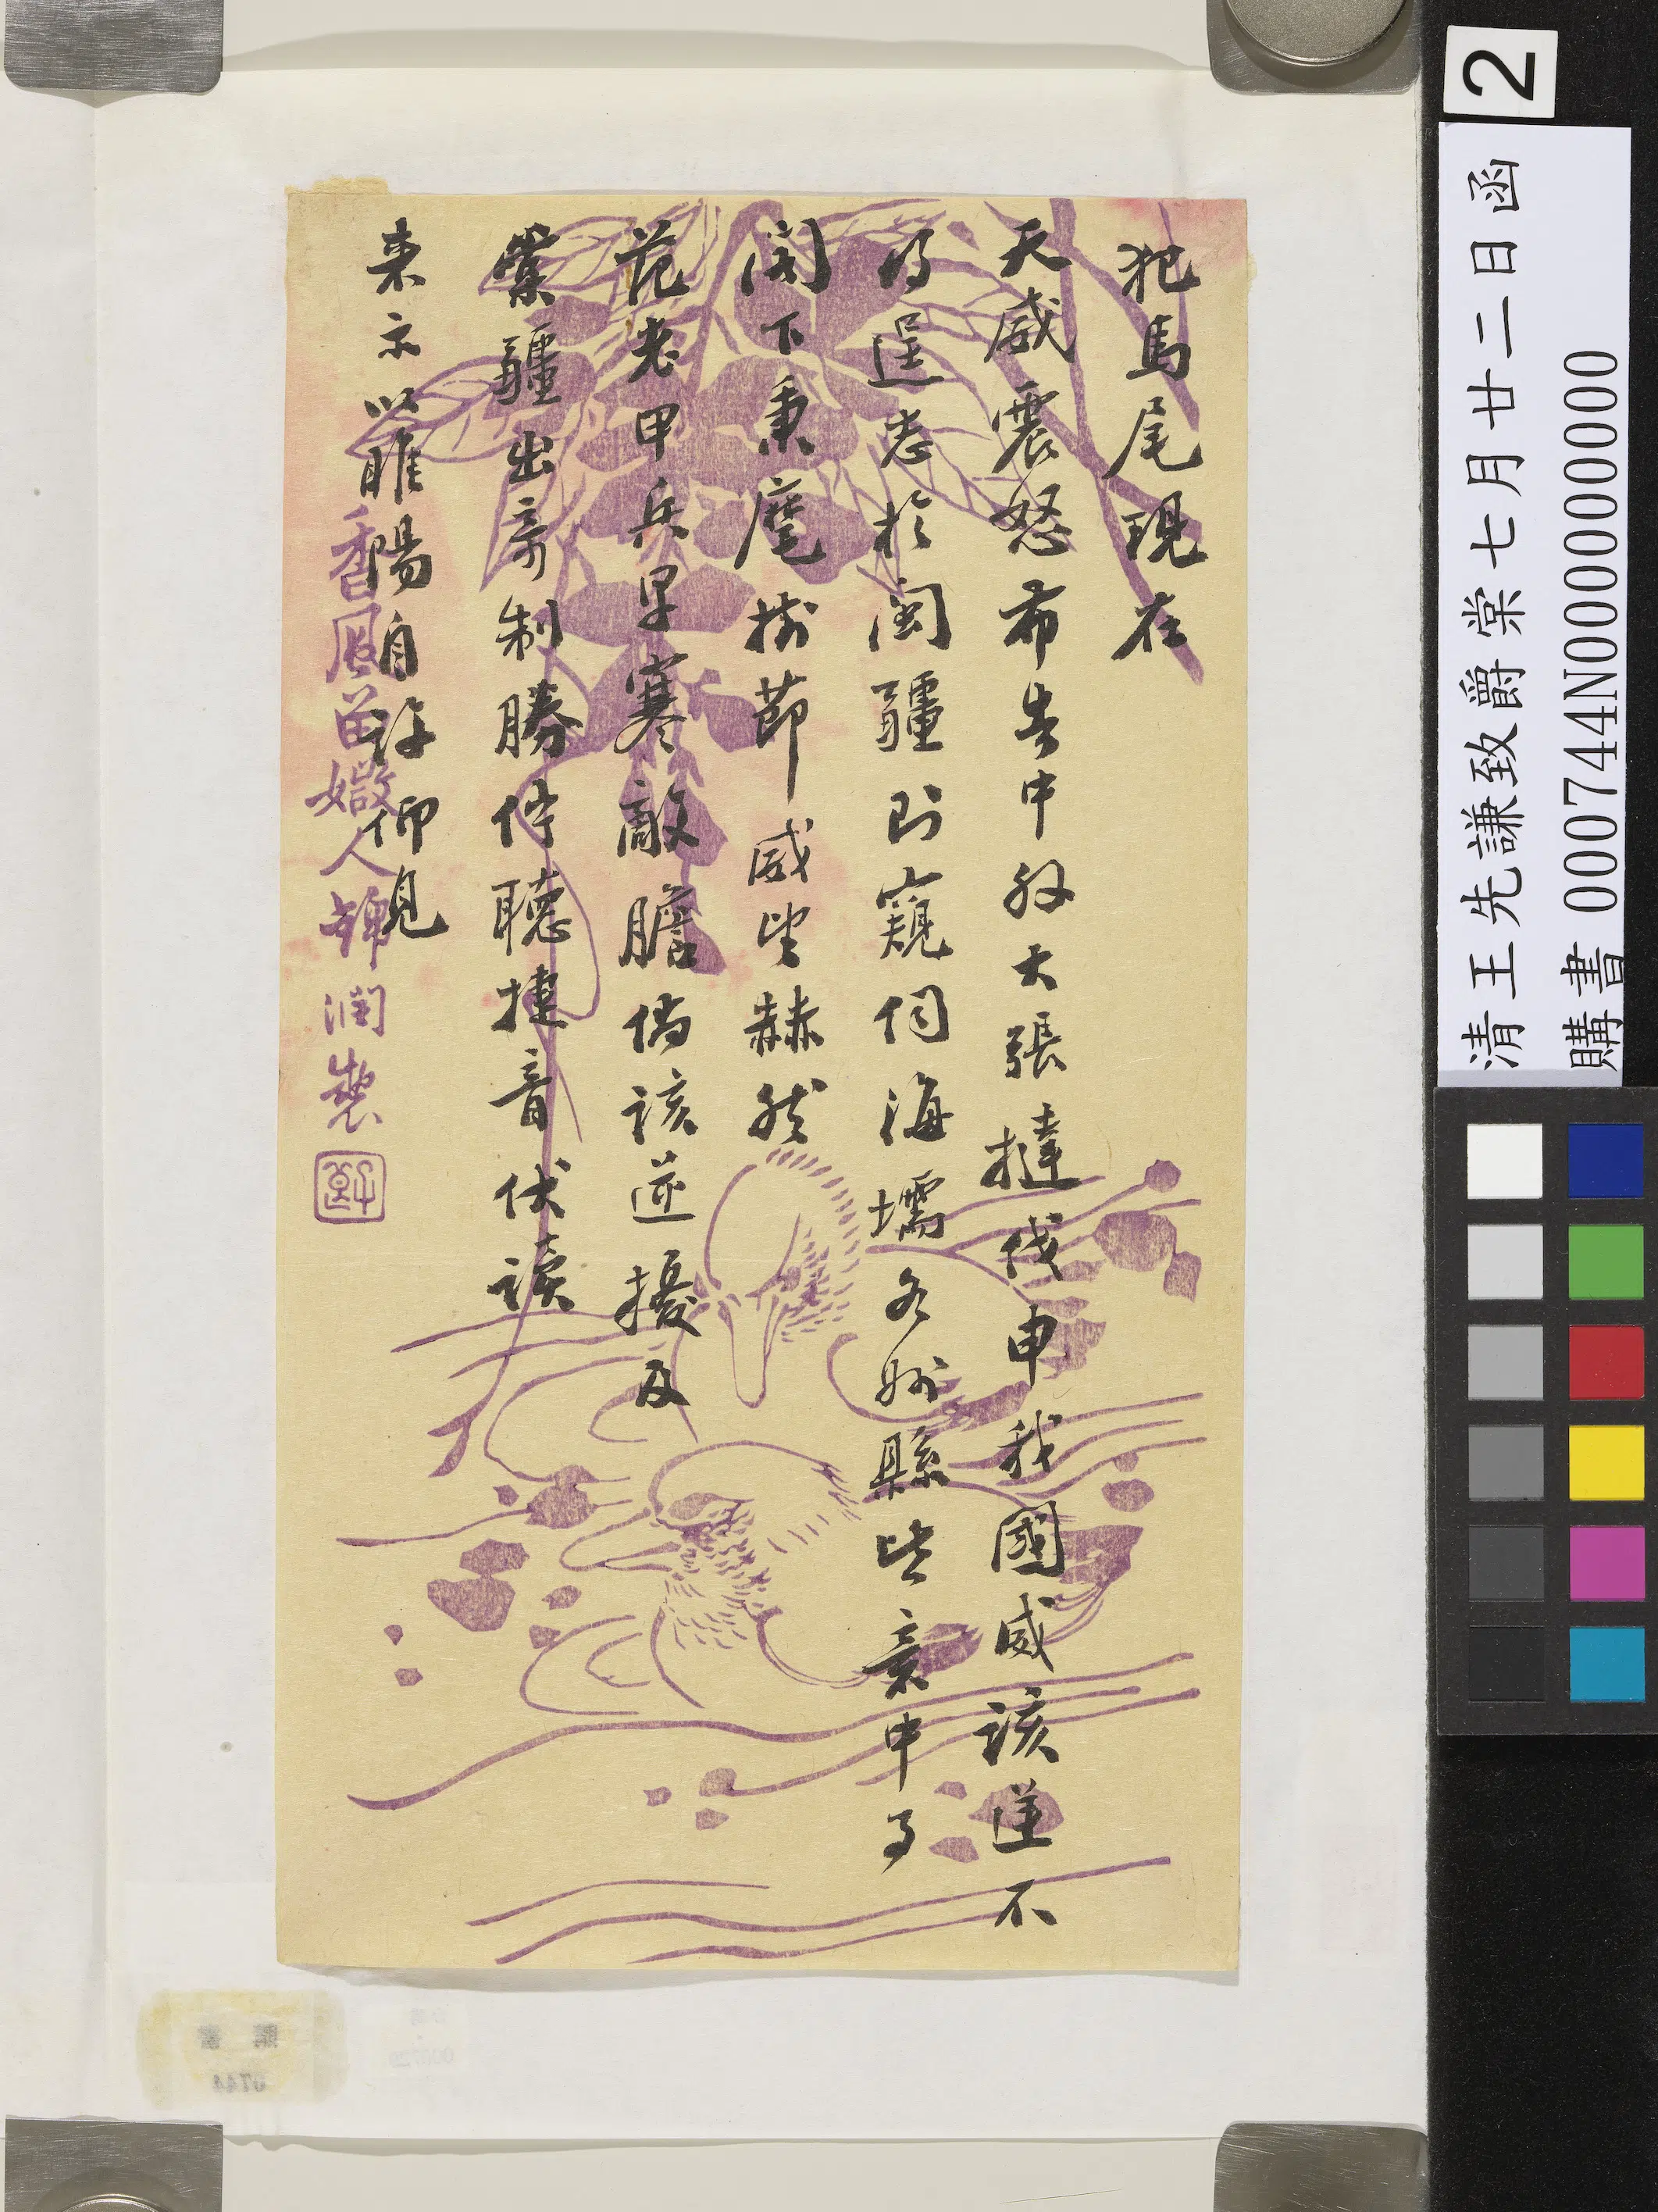 犯馬尾現在
天威震怒布告中外大張撻伐申我國威該逆不
得逞志於閩疆則窺伺海壖各州縣皆意中事
閣下秉麾樹節威望赫然
范老甲兵早寒敵膽倘該逆擾及
棠疆出奇制勝佇聽捷音伏讀
來示以睢陽自許仰見
香風留媺人錦潤製
2
清王先謙致爵棠七月廿二日函
購書 000744N000000000